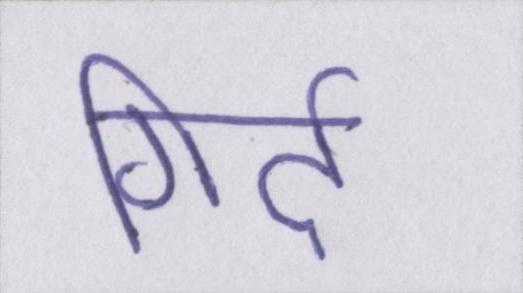 गिर्द